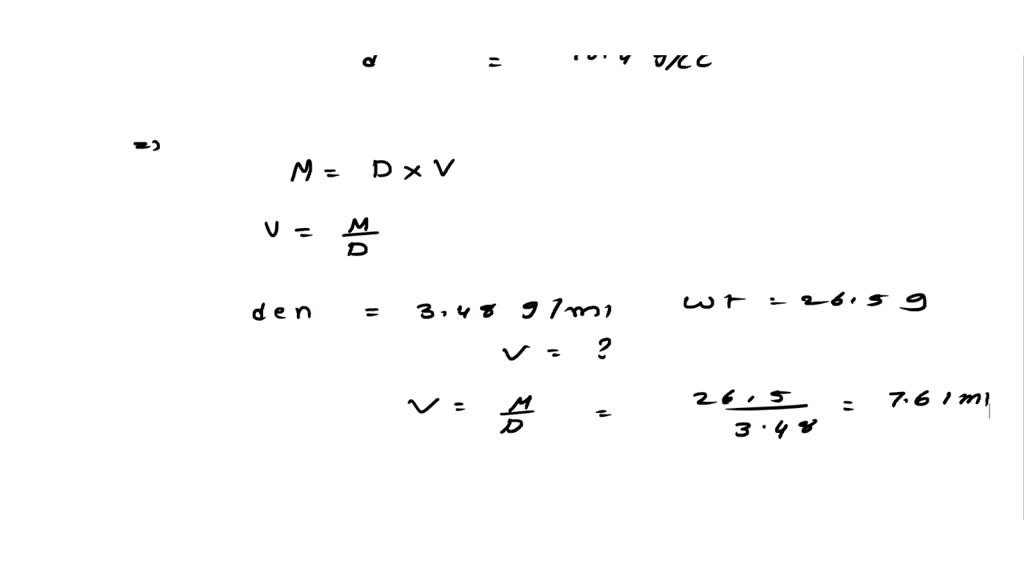 d =
=>
M = D × V
V = M/D
den = 3.48 g/ml wt = 26.5 g
V = ?
V = M/D = 26.5/3.48 = 7.61 ml